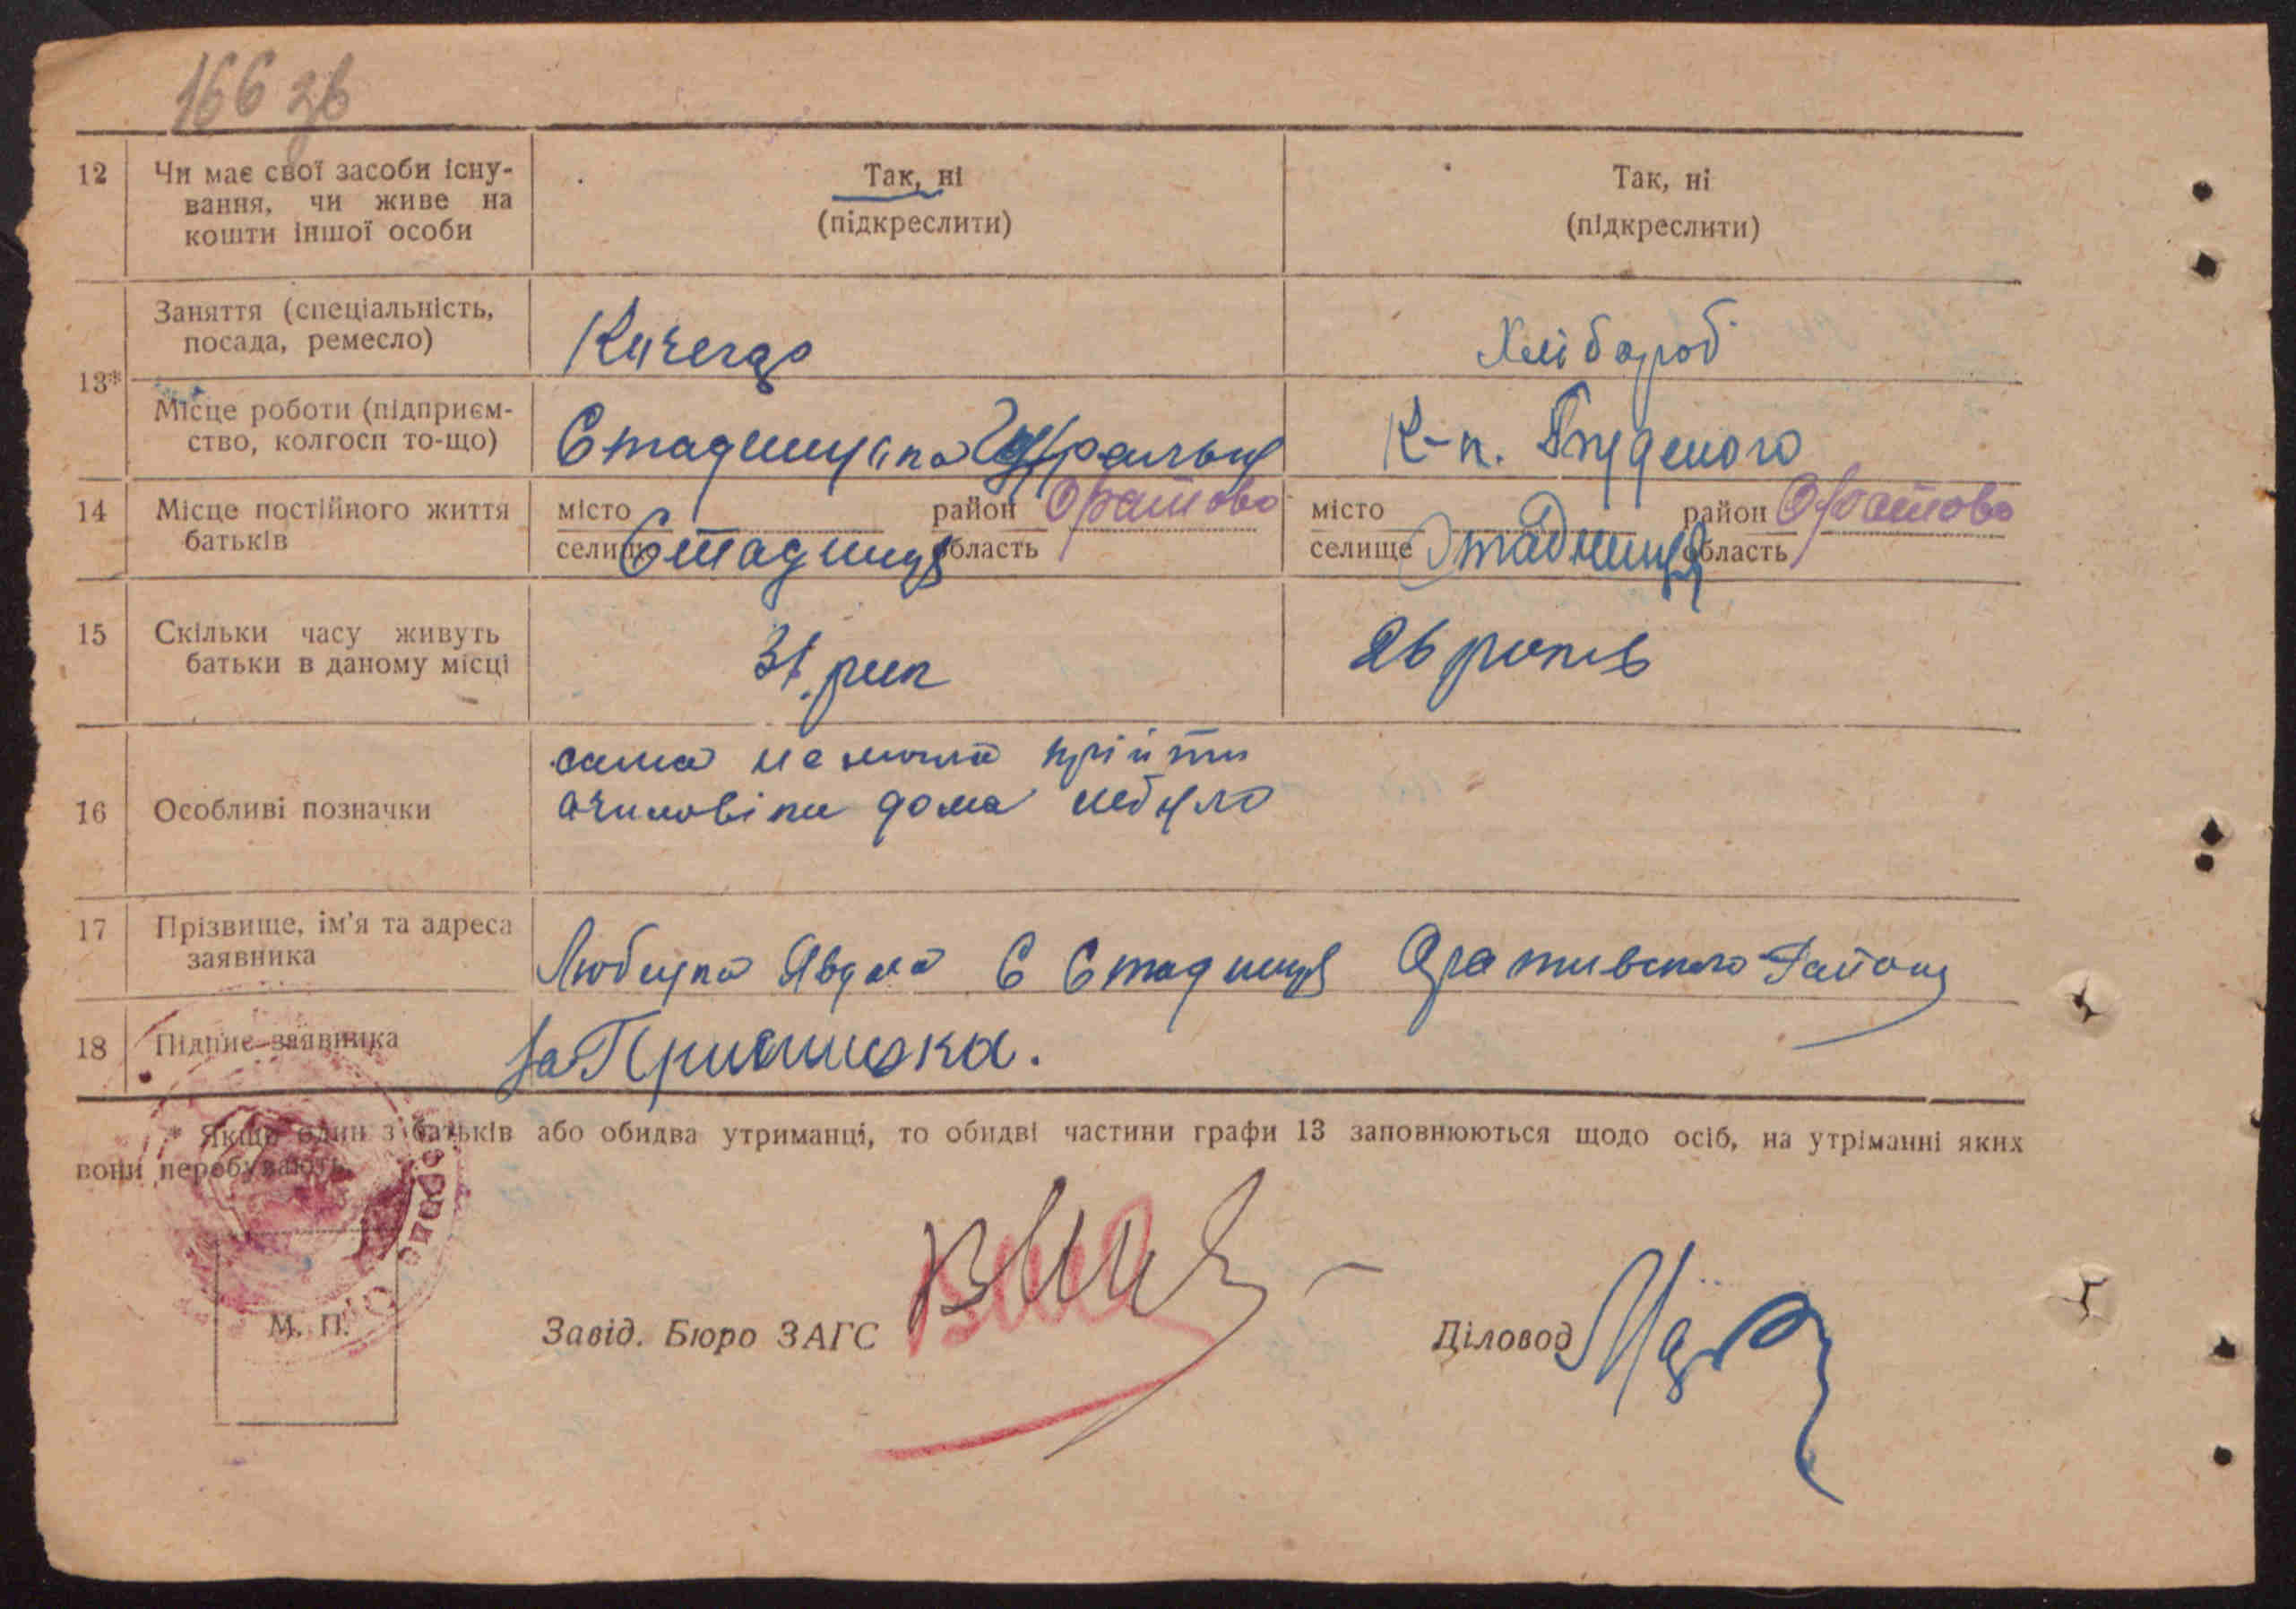 166 зв
12 Чи має свої засоби існу- Так, ні Так, ні
вання, чи живе на (підкреслити) (підкреслити)
кошти іншої особи
Заняття (спеціальність, Хлібороб
посада, ремесло)
13*
Місце роботи (підприєм- К-п. Будьоного
ство, колгосп то-що)
14 Місце постійного життя місто район Оратово місто район Оратово
батьків селище Стадниця область селище Стадниця область
15 Скільки часу живуть 31 рик 26 років
батьки в даному місці
сама не могла прийти
16 Особливі позначки ачиловіка дома небуло
17 Прізвище, ім'я та адреса Явдоха С Стадниця Оративского Району
заявника
18 Підпис заявника
* Якщо один з батьків або обидва утриманці, то обидві частини графи 13 заповнюються щодо осіб, на утріманні яких
вони перебувають.
М. П. Завід. Бюро ЗАГС Діловод